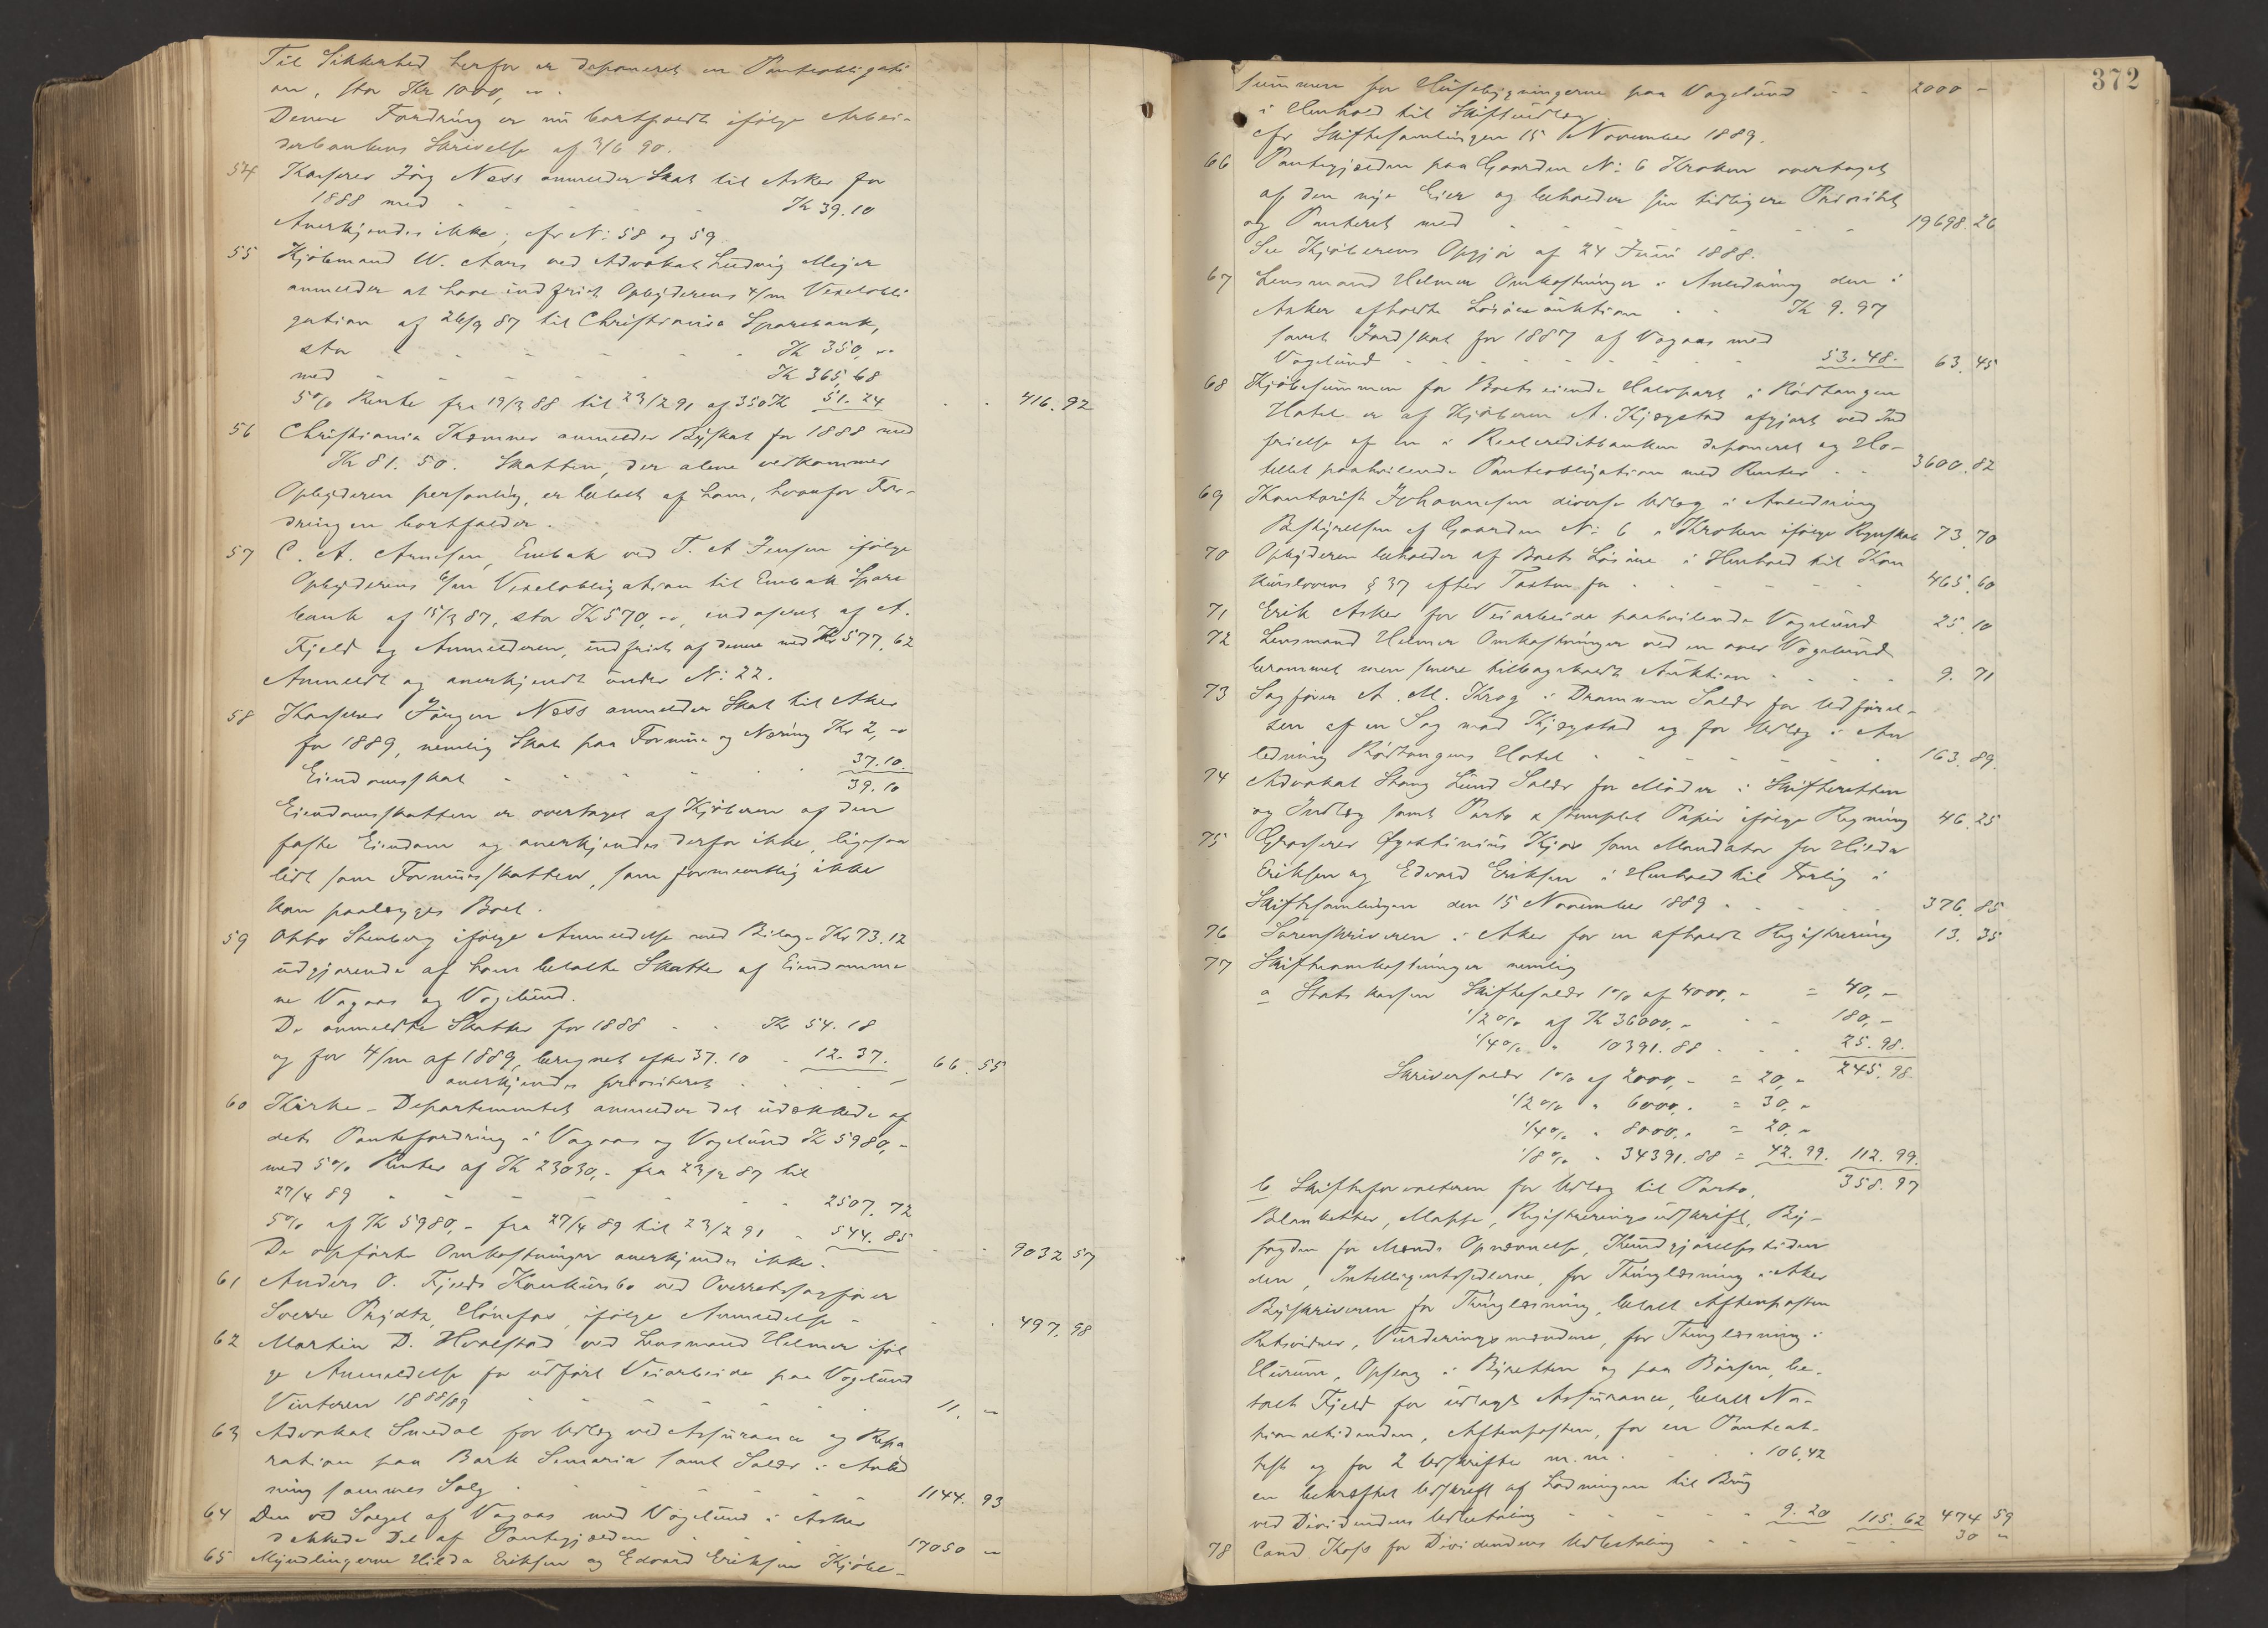 Til Sikkerhed herfor er deponeret en Panteobligati
on, stor Kr 1000, "".
Denne Fordring er nu bortfaldt ifølge Arbei-
derbankens Skrivelse af 3/6 90.
54 Kasserer Jörg Ness anmelder Skat til Asker for
1888 med - - - - Kr 39.10
Anerkjendes ikke, cfr N: 58 og 59
55 Kjöbmand W. Aars ved Advokat Ludvig Mejer
anmelder at have indfriet Opbyderens 4/m Vexelobli
gation af 26/9 87 til Christiania Sparebank,
stor - - - - - Kr 350, ""
med - - - - - Kr 365,68
5% Rente fra 19/3 88 til 23/2 91 af 350 Kr 51.24 - - 416.92
56 Christiania Kæmner anmelder Byskat for 1888 med
Kr 81.50. Skatten, der alene vedkommer
Opbyderen personlig, er betalt af ham, hvorfor For-
dringen bortfalder.
57 C. A. Arnesen, Embak ved T. A Jensen ifölge
Opbyderens 6/m Vexelobligation til Embak Spare
bank af 15/3 87, stor Kr 570, "", endosseret af A.
Fjeld og Anmelderen, indfriet af denne med Kr 577,62
Anmeldt og anerkjendt under N: 22.
58 Kasserer Jörgen Ness anmelder Skat til Asker
for 1889, nemlig Skat paa Formue og Næring Kr 2, ""
Eiendomsskat - - - - 37.10.
39.10
Eiendomsskatten er overtaget af Kjöberen af den
faste Eiendom og anerkjendes derfor ikke, ligesaa
lidt som Formuesskatten, som formentlig ikke
kan paalægges Boet.
59 Otto Stenberg ifölge Anmeldelse med Bilag - Kr 73.12
udgjørende af ham betalte Skatter af Eiendomme
ne Vogaas og Vogelund.
De anmeldte Skatter for 1888 - - Kr 54.18
og for 4/m af 1889, beregnet efter 37.10 - 12.37. 66.55
anerkjendes prioriteret - - - -
60 Kirke-Departementet anmelder det udækkede af
dets Pantefordring i Vogaas og Vogelund Kr 5980,-
med 5% Renter af Kr 23030,- fra 23/2 87 til
27/4 89 - - - - - 2507.72
5% af Kr 5980,- fra 27/4 89 til 23/2 91 - 544.85 - - 9032 57
De opförte Omkostninger anerkjendes ikke.
61 Anders O. Fjelds Konkursbo ved Overretssagförer
Sverre Prydtz, Hönefos, ifölge Anmeldelse - - - 497.98
62 Martin D. Hvalstad ved Lensmand Helmer iföl
ge Anmeldelse for udfört Veiarbeide paa Vogelund
Vinteren 1888/89 - - - - - 11. ""
63 Advokat Smedal for Udlæg ved Assurance og Repa
ration paa Bark Semaria samt Salær i Anled
ning sammes Salg - - - - - 1144.93
64 Den ved Salget af Vogaas med Vogelund i Asker
dækkede Del af Pantegjælden - - - 17050 ""
65 Myndlingerne Hilda Eriksen og Edvard Eriksen Kjöbe-
372
summen for Husebygningerne paa Vogelund - - 2000 -
i Henhold til Skifteudlæg
cfr Skiftesamlingen 15 November 1889.
66 Pantegjælden paa Gaarden N: 6 Kroken overtaget
af den nye Eier og beholder sin tidligere Prioritet
og Panteret med - - - - - 19698.26
Se Kjöberens Opgjör af 24 Juni 1888.
67 Lensmand Helmer Omkostninger i Anledning den i
Asker afholdte Lösöreauktion - - Kr 9.97
samt Jordskat for 1887 af Vogaas med
Vogelund - - - - - 53.48. 63.45
68 Kjöbesummen for Boets eiende Halvpart i Rödtangen
Hotel er af Kjöberen A. Kjøgstad afgjort ved Ind
frielse af en i Realcreditbanken deponeret og Ho-
tellet paahvilende Panteobligation med Renter - - 3600.82
69 Kontorist Johannesen diverse Udlæg i Anledning
Bestyrelsen af Gaarden N: 6 i Kroken ifölge Regnskab 73.70
70 Opbyderen beholder af Boets Lösöre i Henhold til Kon
kurslovens § 37 efter Taxten for - - - - 465.60
71 Erik Asker for Veiarbeide paahvilende Vogelund 25.10
72 Lensmand Helmer Omkostninger ved en over Vogelund
berammet men senere tilbagekaldt Auktion - - - 9.71
73 Sagförer A. M. Krog i Drammen Salær for Udförel-
sen af en Sag mod Kjøgstad og for Udlæg i An
ledning Rödtangens Hotel - - - - - 163.89.
74 Advokat Stang Lund Salær for Möder i Skifteretten
og Indlæg samt Porto & stemplet Papir ifölge Regning 46.25
75 Grosserer Kjær som Mandatar for Hilda
Eriksen og Edvard Eriksen i Henhold til Forlig i
Skiftesamlingen den 15 November 1889 - - - - 376.85
76 Sorenskriveren i Aker for en afholdt Registrering 13.35
77 Skifteomkostninger nemlig
a Stats kassen Skiftesalær 1% af 4000,- = 40,-
1/2% af Kr 36000,- - - 180,-
1/4% " 10391.88 - - - 25.98.
Skriversalær 1% af 2000,- = 20,- 245.98.
1/2% " 6000,- = 30,-
1/4% " 8000,- = 20,-
1/8% " 34391.88 = 42.99. 112.99.
b Skifteforvalteren for Udlæg til Porto, 358.97
Blanketter, Mappe, Registreringsudskrift, By-
fogden for Mænds Opnævnelse, Kundgjörelsestiden
den, Intelligentssedlerne, for Thinglæsning i Aker
Byskriveren for Thinglæsning, betalt Aftenposten
Retsvidner, Vurderingsmændene, for Thinglæsning i
Hurum, Opslag i Byretten og paa Börsen, be-
talt Fjeld for udlagt Assurance, betalt Na-
tionaltidenden, Aftenposten, for en Panteat-
test og for 2 Udskrifter m.m. - - - 106,42
en bekræftet Udskrift af Ladningen til Brug
ved Dividendens Udbetaling - - - - 9.20 115.62 474 59
78 Cand. Koss for Dividendens Udbetaling - - - - 30 "